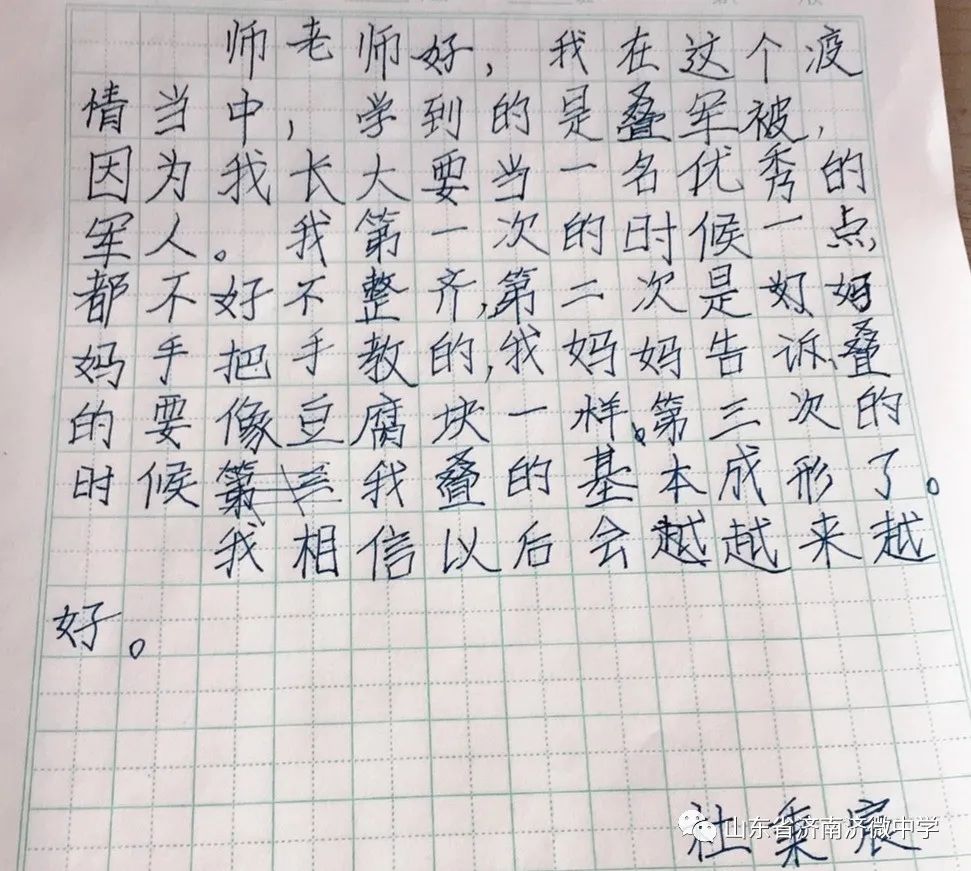 师老师好，我在这个疫
情当中，学到的是叠军被，
因为我长大要当一名优秀的
军人。我第一次的时候一点，
都不好不整齐，第二次是好妈
妈手把手教的，我妈妈告诉，叠
的要像豆腐块一样。第三次的
时候我叠的基本成形了。
我相信以后会越越来越
好。
山东省济南济微中学